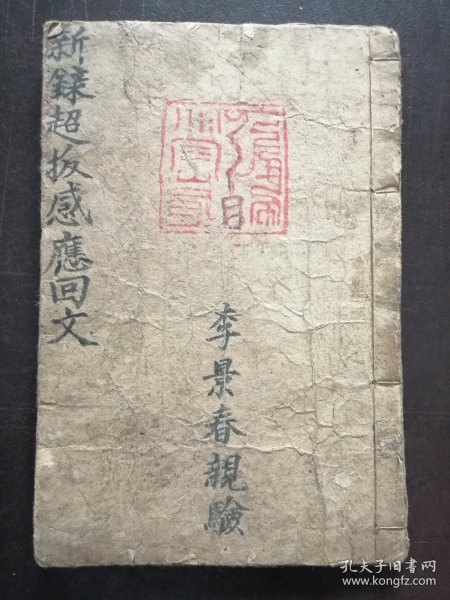 新錄超拔感應回文
李景春親驗
孔夫子旧书网
www.kongfz.com